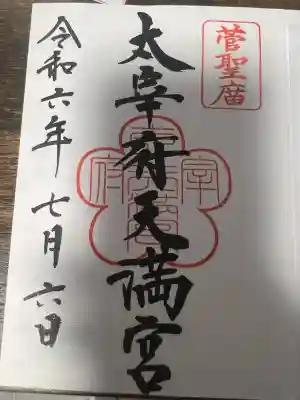 菅聖廟
太宰府天満宮
令和六年七月六日